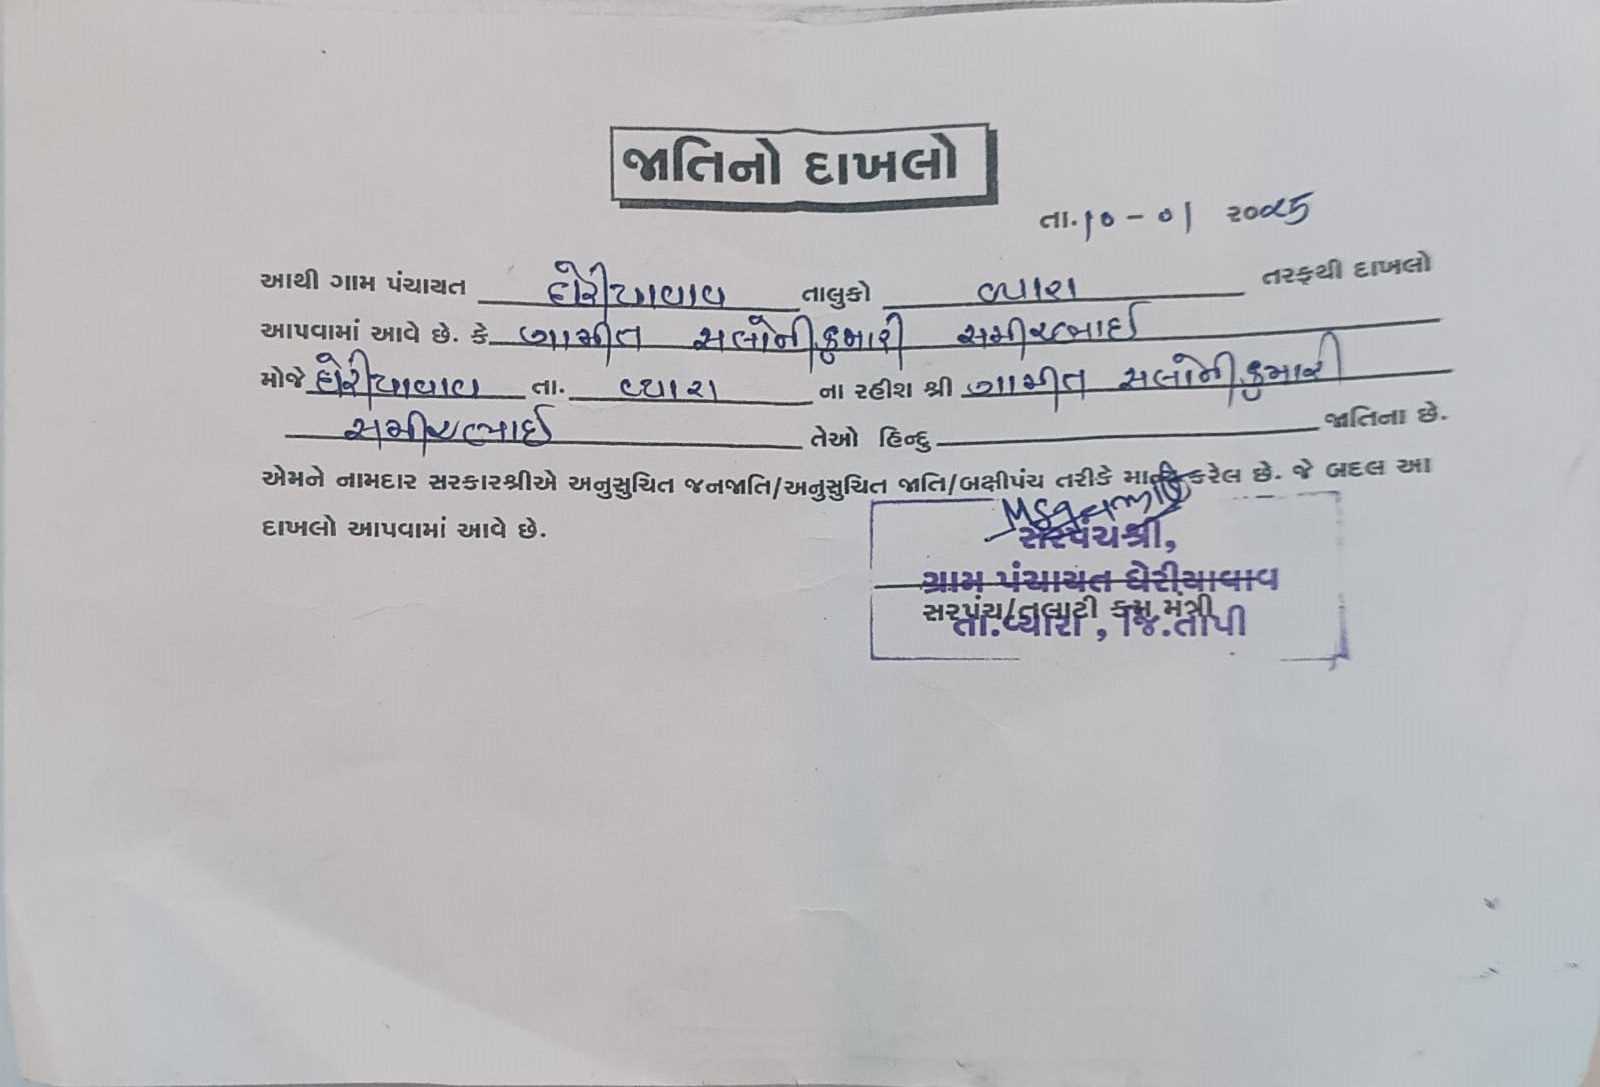 જાતિનો દાખલો
તા.૧૦-૦૧ ૨૦૨૫
આથી ગામ પંચાયત ઘેરીયાવાવ તાલુકો વ્યારા તરફથી દાખલો
આપવામાં આવે છે. કે ગામીત સલોનીકુમારી સમીરભાઈ
મોજે ઘેરીયાવાવ તા. વ્યારા ના રહીશ શ્રી ગામીત સલોનીકુમારી
સમીરભાઈ તેઓ હિન્દુ જાતિના છે.
એમને નામદાર સરકારશ્રીએ અનુસુચિત જનજાતિ/અનુસુચિત જાતિ/બક્ષીપંચ તરીકે કરેલ છે. જે બદલ આ
દાખલો આપવામાં આવે છે.
સરપંચશ્રી,
ગ્રામ પંચાયત ઘેરીયાવાવ
સરપંચ/તલાટી કમ મંત્રી
તા.વ્યારા, જિ.તાપી